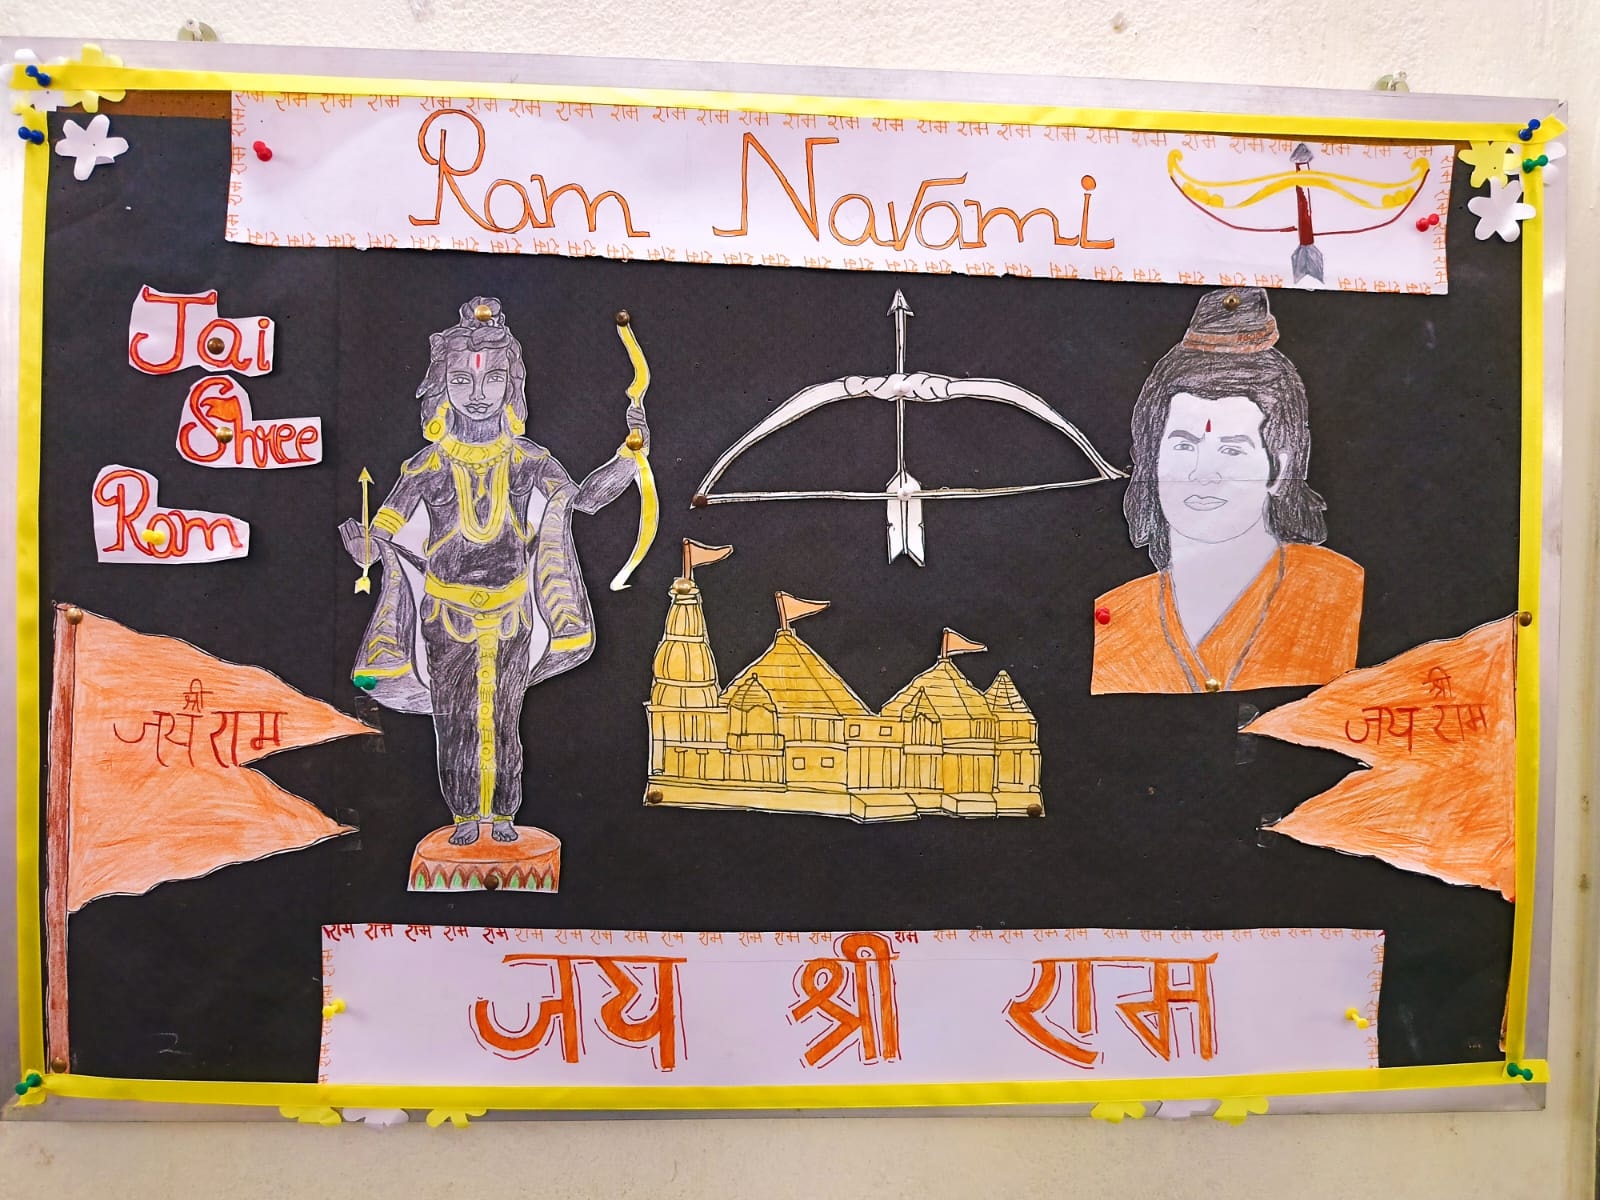 राम राम राम राम राम राम राम राम राम राम राम राम राम राम राम राम राम राम राम राम राम राम राम राम राम राम राम
Ram Navami
Jai
Shree
Ram
श्री
जय राम
श्री
जय राम
राम राम राम राम राम राम राम राम राम राम राम राम राम राम राम राम राम राम राम राम राम राम राम राम राम राम राम राम राम
जय श्री राम